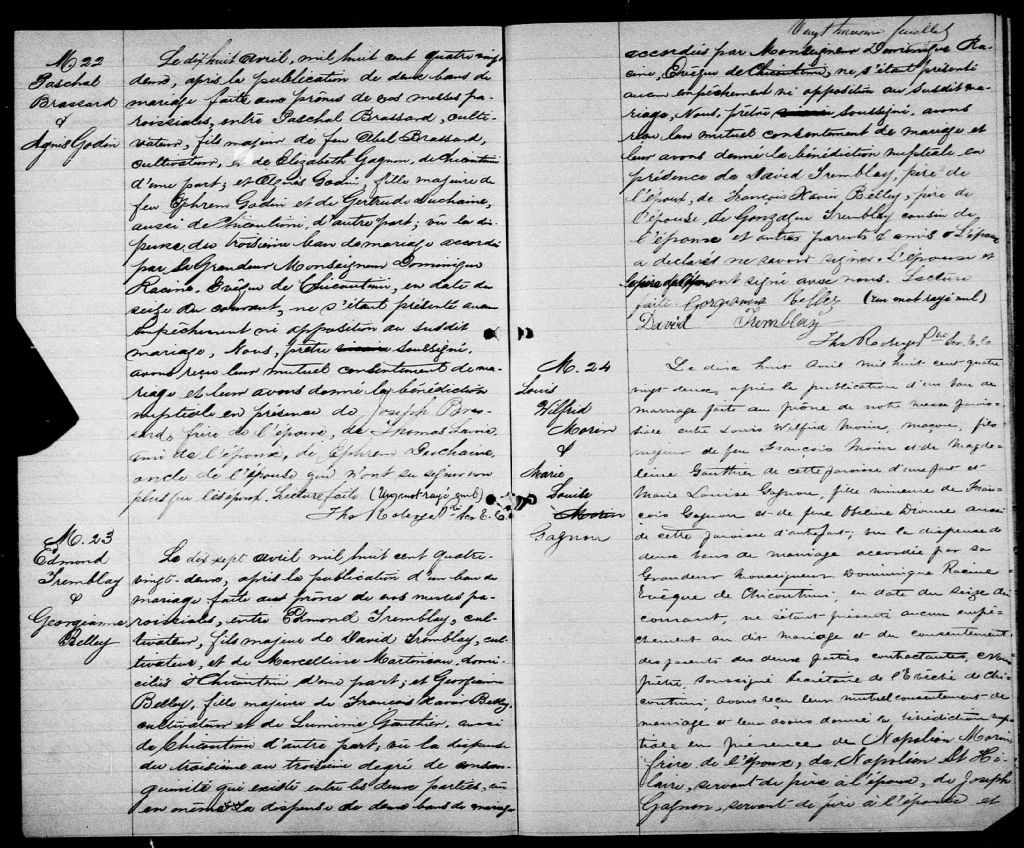 M 22
Paschal
Brassard
&
Agnès Godin
Le dix huit avril, mil huit cent quatre vingt
deux, après la publication de deux bans de
mariage faite aux prônes de nos messes pa-
roissiales, entre Paschal Brassard, culti-
vateur, fils majeur de feu Abel Brassard,
cultivateur, et de Elizabeth Gagnon, de Chicoutimi
d'une part; et Agnès Godin, fille majeure de
feu Ephrem Godin et de Gertrude Duchaine,
aussi de Chicoutimi, d'autre part; vû la dis-
pense du troisième ban de mariage accordé
par Sa Grandeur Monseigneur Dominique
Racine, Evêque de Chicoutimi, en date du
seize du courant, ne s'étant présenté aucun
empêchement ni opposition au susdit
mariage, Nous, prêtre soussigné,
avons reçu leur mutuel consentement de ma-
riage et leur avons donné la bénédiction
nuptiale en présence de Joseph Bras-
sard, frère de l'époux, de Thomas
ami de l'époux, de Ephrem Duchaine,
oncle de l'épouse qui n'ont su signer non
plus que les époux. Lecture faite (Un mot rayé nul)
Ths Roberge Ptre Sec. E. C.
M. 23
Edmond
Tremblay
&
Georgianna
Belley
Le dix sept avril mil huit cent quatre-
vingt-deux, après la publication d'un ban de
mariage faite au prône de nos messes pa-
roissiales, entre Edmond Tremblay, cul-
tivateur, fils majeur de David Tremblay, cul-
tivateur, et de Marcelline Martineau, domi-
ciliés à Chicoutimi d'une part; et Georgianna
Belley, fille majeure de François Xavier Belley,
cultivateur et de Luminie Gauthier, aussi
de Chicoutimi d'autre part, vû la dispense
du troisième au troisième degré de consan-
guinité qui existe entre les deux parties,
en même la dispense de deux bans de mariage
Vingt troisième feuillet
accordés par Monseigneur Dominique Ra-
cine, Evêque de Chicoutimi, ne s'étant présenté
aucun empêchement ni opposition au susdit ma-
riage, Nous, prêtre soussigné, avons
reçu leur mutuel consentement de mariage et
leur avons donné la bénédiction nuptiale en
présence de David Tremblay, père de
l'époux, de François Xavier Belley, père de
l'épouse de Gonzague Tremblay cousin de
l'épouse et autres parents & amis. L'époux
a déclaré ne savoir signer. L'épouse et
le père de l'époux ont signé avec nous. Lecture
faite. Georgianna Belley (un mot rayé nul)
David Tremblay
Ths Roberge Ptre Sec. E. C.
M. 24
Louis
Wilfrid
Morin
&
Marie
Louise
Morin
Gagnon
Le dix huit Avril mil huit cent quatre
vingt-deux, après la publication d'un ban de
mariage faite au prône de notre messe parois-
siale entre Louis Wilfrid Morin, maçon, fils
majeur de feu François Morin et de Magde-
leine Gauthier de cette paroisse d'une part et
Marie Louise Gagnon, fille mineure de Fran-
çois Gagnon et de feue aussi
de cette paroisse d'autre part; vu la dispense de
deux bans de mariage accordée par sa
Grandeur Monseigneur Dominique Racine
Evêque de Chicoutimi, en date du seize du
courant, ne s'étant présenté aucun empê-
chement au dit mariage et du consentement
des parents des deux parties contractantes, Nous
prêtre, soussigné Secrétaire de l'Evêché de Chi-
coutimi, avons reçu leur mutuel consentement de
mariage et leur avons donné la bénédiction nup-
tiale en présence de Napoléon Morin,
frère de l'époux, de Napoléon St Hi-
laire, servant de père à l'époux, de Joseph
Gagnon, servant de père à l'épouse et